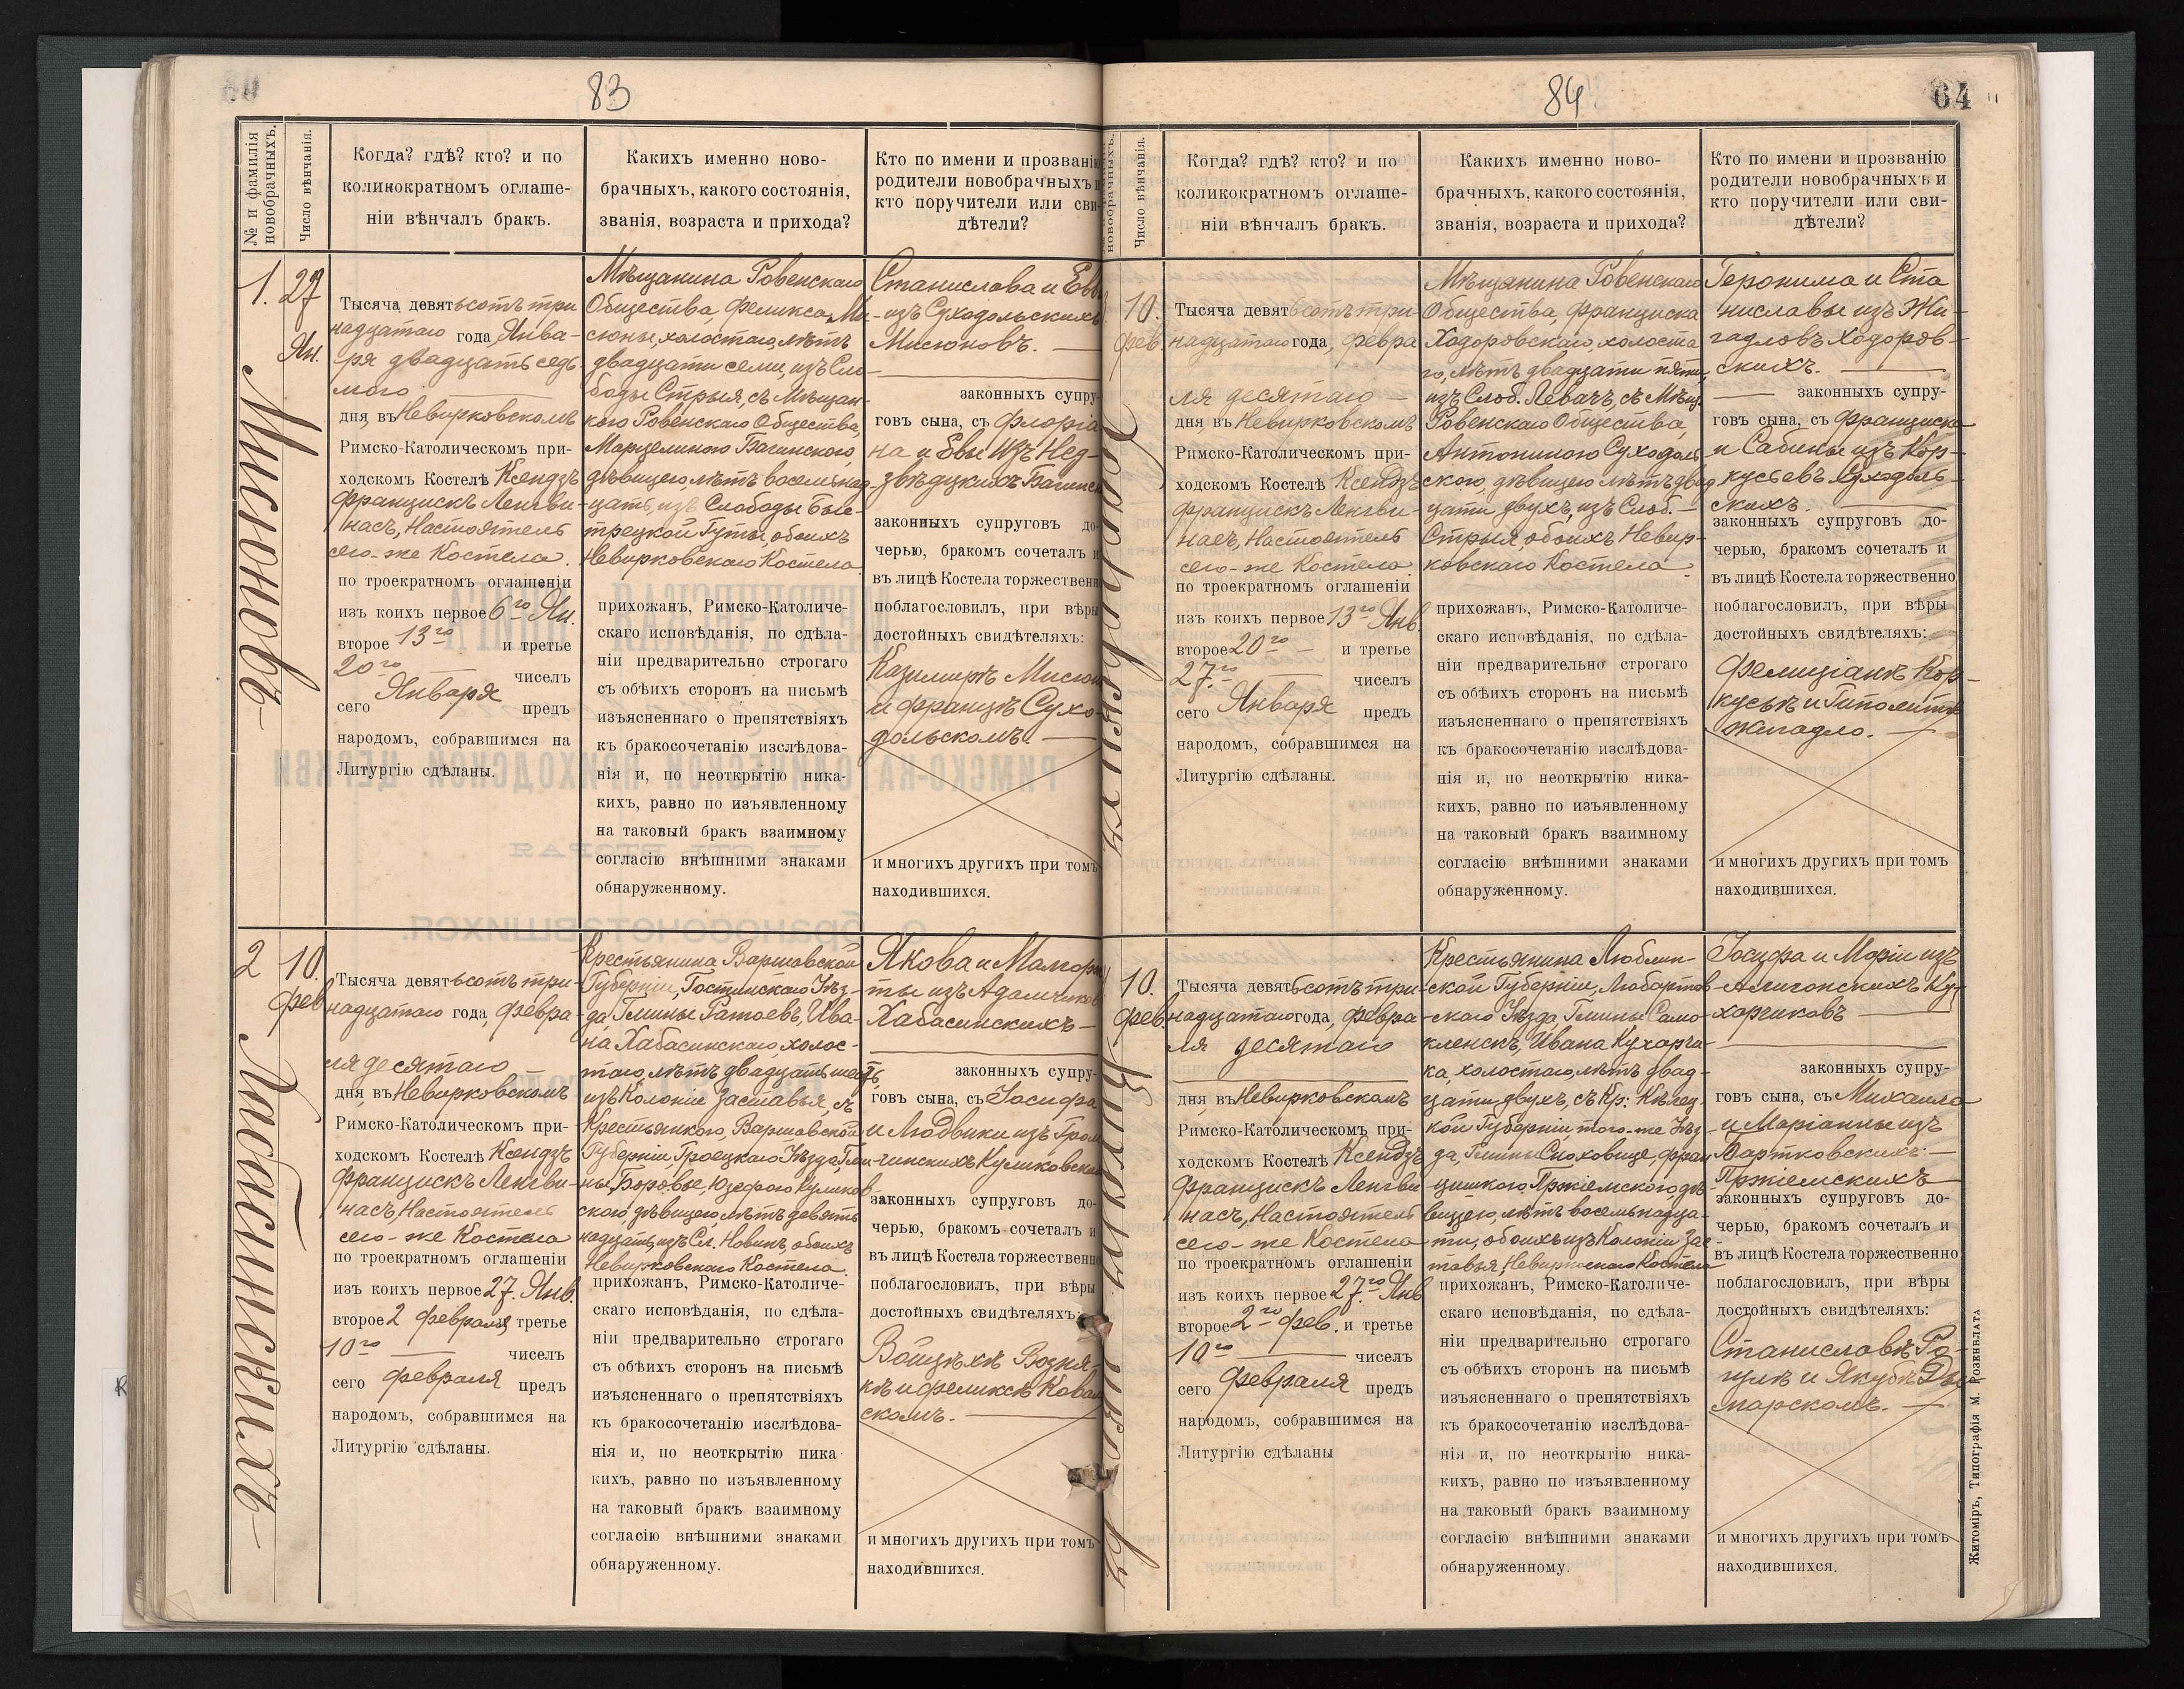 83
№ и фамилія новобрачныхъ.
Число вѣнчанія.
Когда? гдѣ? кто? и по
коликократномъ оглаше-
ніи вѣнчалъ бракъ.
Какихъ именно ново-
брачныхъ, какого состоянія,
званія, возраста и прихода?
Кто по имени и прозванію
родители новобрачныхъ и
кто поручители или сви-
дѣтели?
1.
27
Ян.
Мисюновъ
Тысяча девятьсотъ три
надцатаго года Янва-
ря двадцать седь
мого
дня, въ Невирковскомъ
Римско-Католическомъ при-
ходскомъ Костелѣ Ксендзъ
Францискъ Ленгви-
насъ, Настоятель
сего-же Костела.
по троекратномъ оглашеніи
изъ коихъ первое 6го Ян.
второе 13го и третье
20го чиселъ
сего Января предъ
народомъ, собравшимся на
Литургію сдѣланы.
Мѣщанина Ровенскаго
Общества, Феликса Ми-
сюны, холостаго, лѣтъ
двадцати семи, изъ Сло
боды Стрыя, съ Мѣщан-
кою Ровенскаго Общества,
Марцелиною Багинского,
дѣвицею, лѣтъ восемьнад-
цать, изъ Слободы Бы-
трецкой Гуты, обоихъ
Невирковскаго Костела
прихожанъ, Римско-Католиче-
скаго исповѣданія, по сдѣла-
ніи предварительно строгаго
съ обѣихъ сторонъ на письмѣ
изъясненнаго о препятствіяхъ
къ бракосочетанію изслѣдова-
нія и, по неоткрытію ника-
кихъ, равно по изъявленному
на таковый бракъ взаимному
согласію внѣшними знаками
обнаруженному.
Станислава и Евы
изъ Суходольскихъ
Мисюновъ.
законныхъ супру-
говъ сына, съ Флоріа
на и Евы изъ Нед-
звѣдцкихъ Багинск
законныхъ супруговъ до-
черью, бракомъ сочеталъ и
въ лицѣ Костела торжественно
поблагословилъ, при вѣры
достойныхъ свидѣтеляхъ:
Казимирѣ Мисюн
и Францѣ Сухо-
дольскомъ.
и многихъ другихъ при томъ
находившихся.
2
10.
Фев
Хабасинскихъ
Тысяча девятьсотъ три-
надцатаго года, Февра-
ля десятаго
дня, въ Невирковскомъ
Римско-Католическомъ при-
ходскомъ Костелѣ Ксендзъ
Францискъ Ленгви-
насъ, Настоятель
сего-же Костела
по троекратномъ оглашеніи
изъ коихъ первое 27. Янв.
второе 2 Февраля, третье
10го чиселъ
сего Февраля предъ
народомъ, собравшимся на
Литургію сдѣланы.
Крестьянина Варшавской
Губерніи, Гостинскаго Уѣз-
да, Гмины Ратоевъ, Ива-
на Хабасинскаго, холос-
таго, лѣтъ двадцать шесть,
изъ Колоніи Заставья, съ
Крестьянкою, Варшавской
Губерніи, Гроецкаго Уѣзда, Гми-
ны, Боровое, Юзефою Куликов-
ского, дѣвицею, лѣтъ девять
надцать, изъ Сл. Новинъ, обоихъ
Невирковскаго Костела.
прихожанъ, Римско-Католиче-
скаго исповѣданія, по сдѣла-
ніи предварительно строгаго
съ обѣихъ сторонъ на письмѣ
изъясненнаго о препятствіяхъ
къ бракосочетанію изслѣдова-
нія и, по неоткрытію ника
кихъ, равно по изъявленному
на таковый бракъ взаимному
согласію внѣшними знаками
обнаруженному.
Якова и Малгоржа
ты изъ Адамчиков
Хабасинскихъ
законныхъ супру-
говъ сына, съ Іосифа
и Людвики изъ Гром
чинскихъ Куликовских
законныхъ супруговъ до-
черью, бракомъ сочеталъ и
въ лицѣ Костела торжественно
поблагословилъ, при вѣры
достойныхъ свидѣтеляхъ:
Войцѣхѣ Возня-
кѣ и Феликсѣ Коваль
скомъ.
и многихъ другихъ при томъ
находившихся.
84.
64
новобрачныхъ.
Число вѣнчанія.
Когда? гдѣ? кто? и по
коликократномъ оглаше-
ніи вѣнчалъ бракъ.
Какихъ именно ново-
брачныхъ, какого состоянія,
званія, возраста и прихода?
Кто по имени и прозванію
родители новобрачныхъ и
кто поручители или сви-
дѣтели?
10.
Фев.
Тысяча девятьсотъ три-
надцатаго года, Февра
ля десятаго
дня, въ Невирковскомъ
Римско-Католическомъ при-
ходскомъ Костелѣ Ксендзъ
Францискъ Ленгви-
насъ, Настоятель
сего-же Костела
по троекратномъ оглашеніи
изъ коихъ первое 13го Янв.
второе 20го и третье
27.го чиселъ
сего Января предъ
народомъ, собравшимся на
Литургію сдѣланы.
Мѣщанина Ровенскаго
Общества, Франциска
Ходоровскаго, холоста
го, лѣтъ двадцати пяти,
изъ Слоб. Левачъ, съ Мѣщ.
Ровенскаго Общества,
Антониною Суходоль
ского, дѣвицею лѣтъ двад
цати двухъ, изъ Слоб.
Стрыя, обоихъ Невир-
ковскаго Костела.
прихожанъ, Римско-Католиче-
скаго исповѣданія, по сдѣла-
ніи предварительно строгаго
съ обѣихъ сторонъ на письмѣ
изъясненнаго о препятствіяхъ
къ бракосочетанію изслѣдова-
нія и, по неоткрытію ника-
кихъ, равно по изъявленному
на таковый бракъ взаимному
согласію внѣшними знаками
обнаруженному.
Геронима и Ста
ниславы изъ Жи-
гадловъ Ходоров-
скихъ.
законныхъ супру-
говъ сына, съ Франциска
и Сабины изъ Кор-
кусьевъ Суходоль-
скихъ.
законныхъ супруговъ до-
черью, бракомъ сочеталъ и
въ лицѣ Костела торжественно
поблагословилъ, при вѣры
достойныхъ свидѣтеляхъ:
Фелиціанѣ Кор-
кусѣ и Гиполитѣ
Жигадло.
и многихъ другихъ при томъ
находившихся.
10.
Фев.
Тысяча девятьсотъ три-
надцатаго года, Февра
ля десятаго
дня, въ Невирковскомъ
Римско-Католическомъ при-
ходскомъ Костелѣ Ксендзъ
Францискъ Ленгви
насъ, Настоятель
сего-же Костела
по троекратномъ оглашеніи
изъ коихъ первое 27.го Янв
второе 2го Фев. и третье
10го чиселъ
сего Февраля предъ
народомъ, собравшимся на
Литургію сдѣланы
Крестьянина Люблин-
ской Губерніи, Любартов
скаго Уѣзда, Гмины Само-
кленскъ, Ивана Кухарчи-
ка, холостаго, лѣтъ двад-
цати двухъ, съ Кр: Кѣлец-
кой Губерніи того-же Уѣз-
да, Гмины Снохови­це, Фран
цишкою Пржіемского дѣ-
вицею, лѣтъ восемьнадца-
ти, обоихъ изъ Колоніи Зас-
тавья Невирковскаго Костела
прихожанъ, Римско-Католиче-
скаго исповѣданія, по сдѣла-
ніи предварительно строгаго
съ обѣихъ сторонъ на письмѣ
изъясненнаго о препятствіяхъ
къ бракосочетанію изслѣдова-
нія и, по неоткрытію ника-
кихъ, равно по изъявленному
на таковый бракъ взаимному
согласію внѣшними знаками
обнаруженному.
Іосифа и Маріи изъ
Ку-
харчиковъ
законныхъ супру-
говъ сына, съ Михаила
и Маріанны изъ
Вартковскихъ
Пржіемскихъ
законныхъ супруговъ до-
черью, бракомъ сочеталъ и
въ лицѣ Костела торжественно
поблагословилъ, при вѣры
достойныхъ свидѣтеляхъ:
Станиславѣ Ро-
гулѣ и Якубѣ Ды
марскомъ.
и многихъ другихъ при томъ
находившихся.
Житоміръ, Типографія М. Розенблата